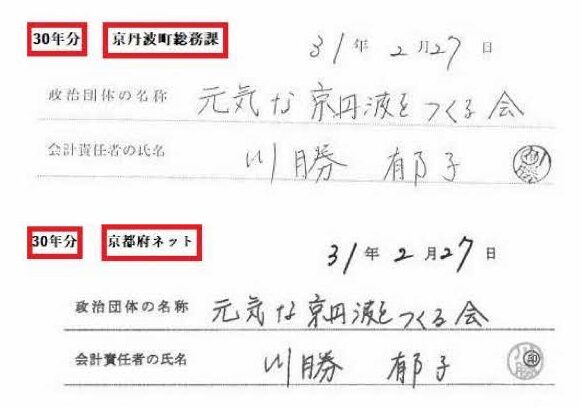 30年分 京丹波町総務課
31年2月27日
政治団体の名称 元気な京丹波をつくる会
会計責任者の氏名 川勝 郁子
30年分 京都府ネット
31年2月27日
政治団体の名称 元気な京丹波をつくる会
会計責任者の氏名 川勝 郁子 印